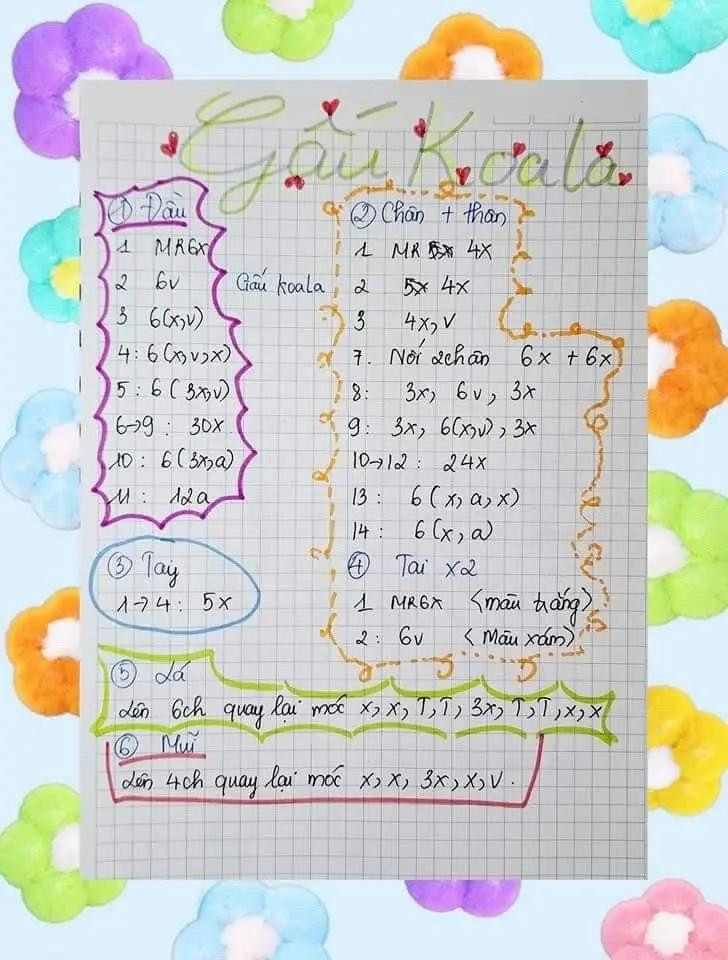 Gấu Koala
① Đầu
1 MR6x
2 6v
3 6(x,v)
4: 6(x,v,x)
5: 6(3x,v)
6→9: 30x
10: 6(3x,a)
11: 12a
Gấu koala
② Chân + thân
1 MR 5x 4x
2 5x 4x
3 4x, v
7. Nối 2chân 6x + 6x
8: 3x, 6v, 3x
9: 3x, 6(x,v), 3x
10→12: 24x
13: 6(x, a, x)
14: 6(x, a)
③ Tay
1→4: 5x
④ Tai x2
1 MR6x <màu trắng>
2: 6v <Màu xám>
⑤ Lá
Lên 6ch quay lại móc x, x, T, T, 3x, T, T, x, x
⑥ Mũi
Lên 4ch quay lại móc x, x, 3x, x, v.